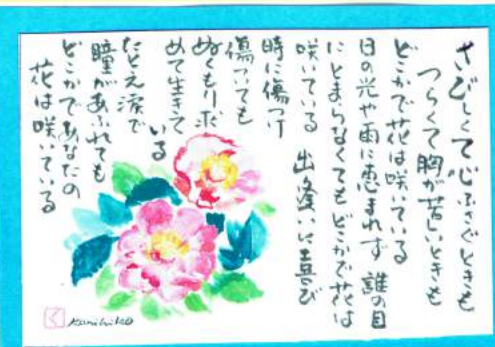 さびしくて心ふさぐときも
つらくて胸が苦しいときも
どこかで花は咲いている
日の光や雨に恵まれず 誰の目
にとまらなくてもどこかで花は
咲いている 出逢いに喜び
時に傷つけ
傷ついても
ぬくもり求
めて生きて
いる
たとえ涙で
瞳があふれても
どこかであなたの
花は咲いている
Kunihiko